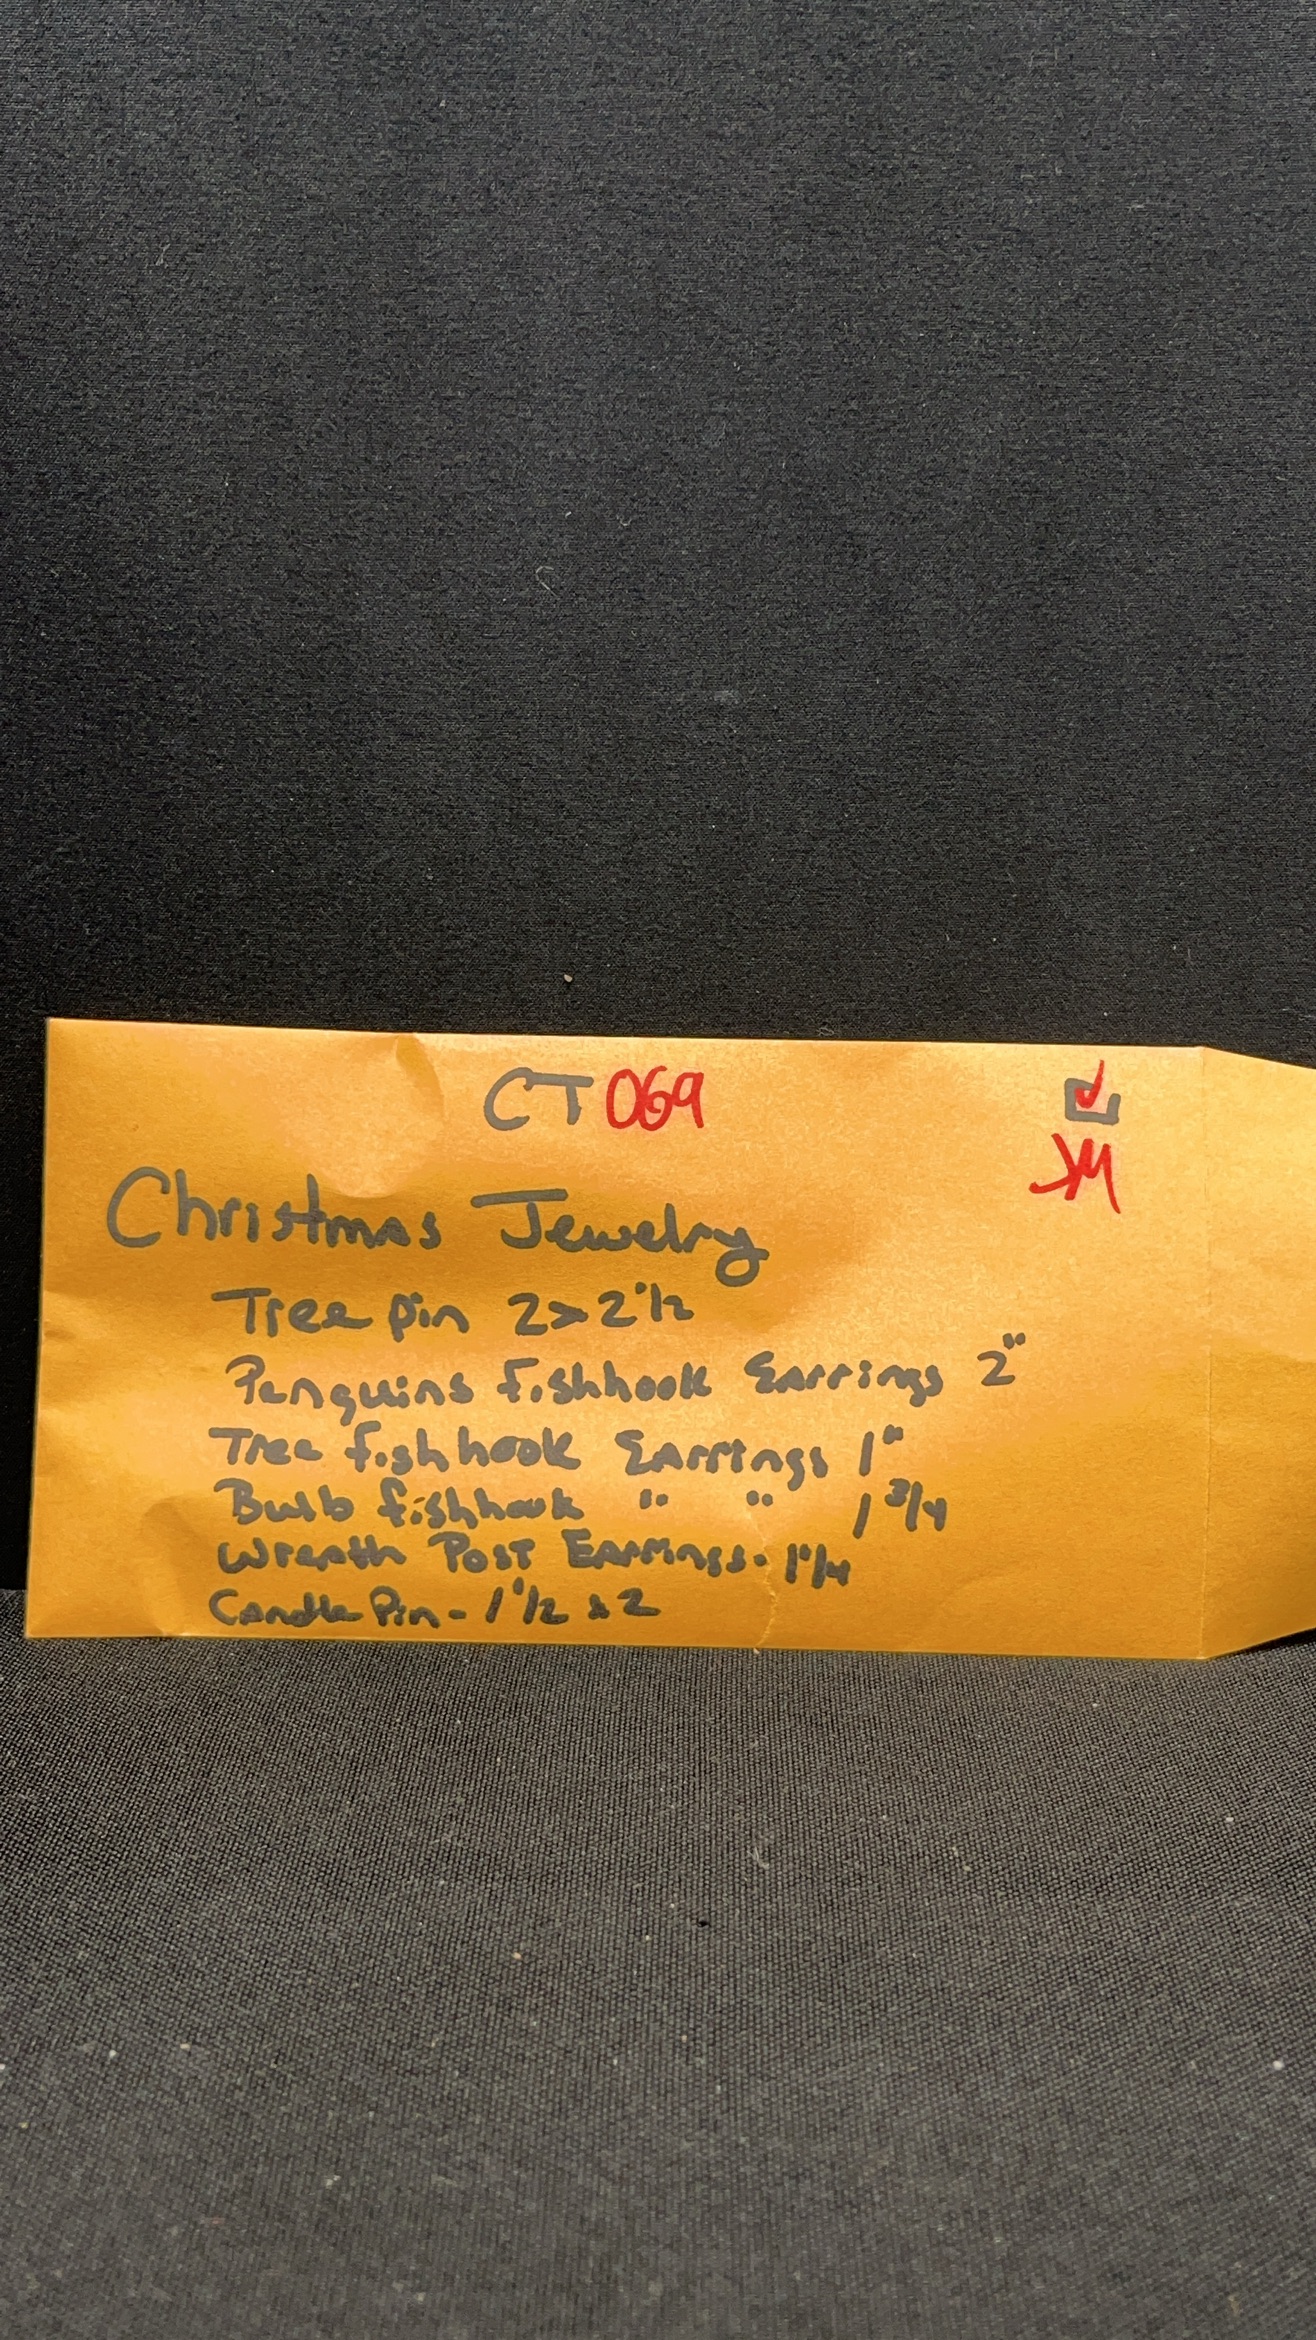 CT069
JM
Christmas Jewelry
Tree pin 2x2 1/2
Penguins fishhook Earrings 2"
Tree fishhook Earrings 1"
Bulb fishhook " " 1 3/4
Wreath Post Earrings - 1 1/4
Candle Pin - 1 1/2 x 2